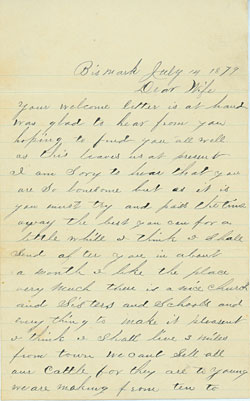 Bismark July 14 1879
Dear Wife
Your welcome letter is at hand
was glad to hear from you
hoping to find you all well
as this leaves us at present
I am Sory to hear that you
are So lonesome but as it is
you must try and pass the time
away the best you can for a
little while I think I Shall
Send after you in about
a month I like the place
very much there is a nice Church
and Sisters and Schools and
every thing to make it pleasant
I think I Shall live 3 miles
from town we cant Sell all
our Cattle for they are to young
we are making from ten to